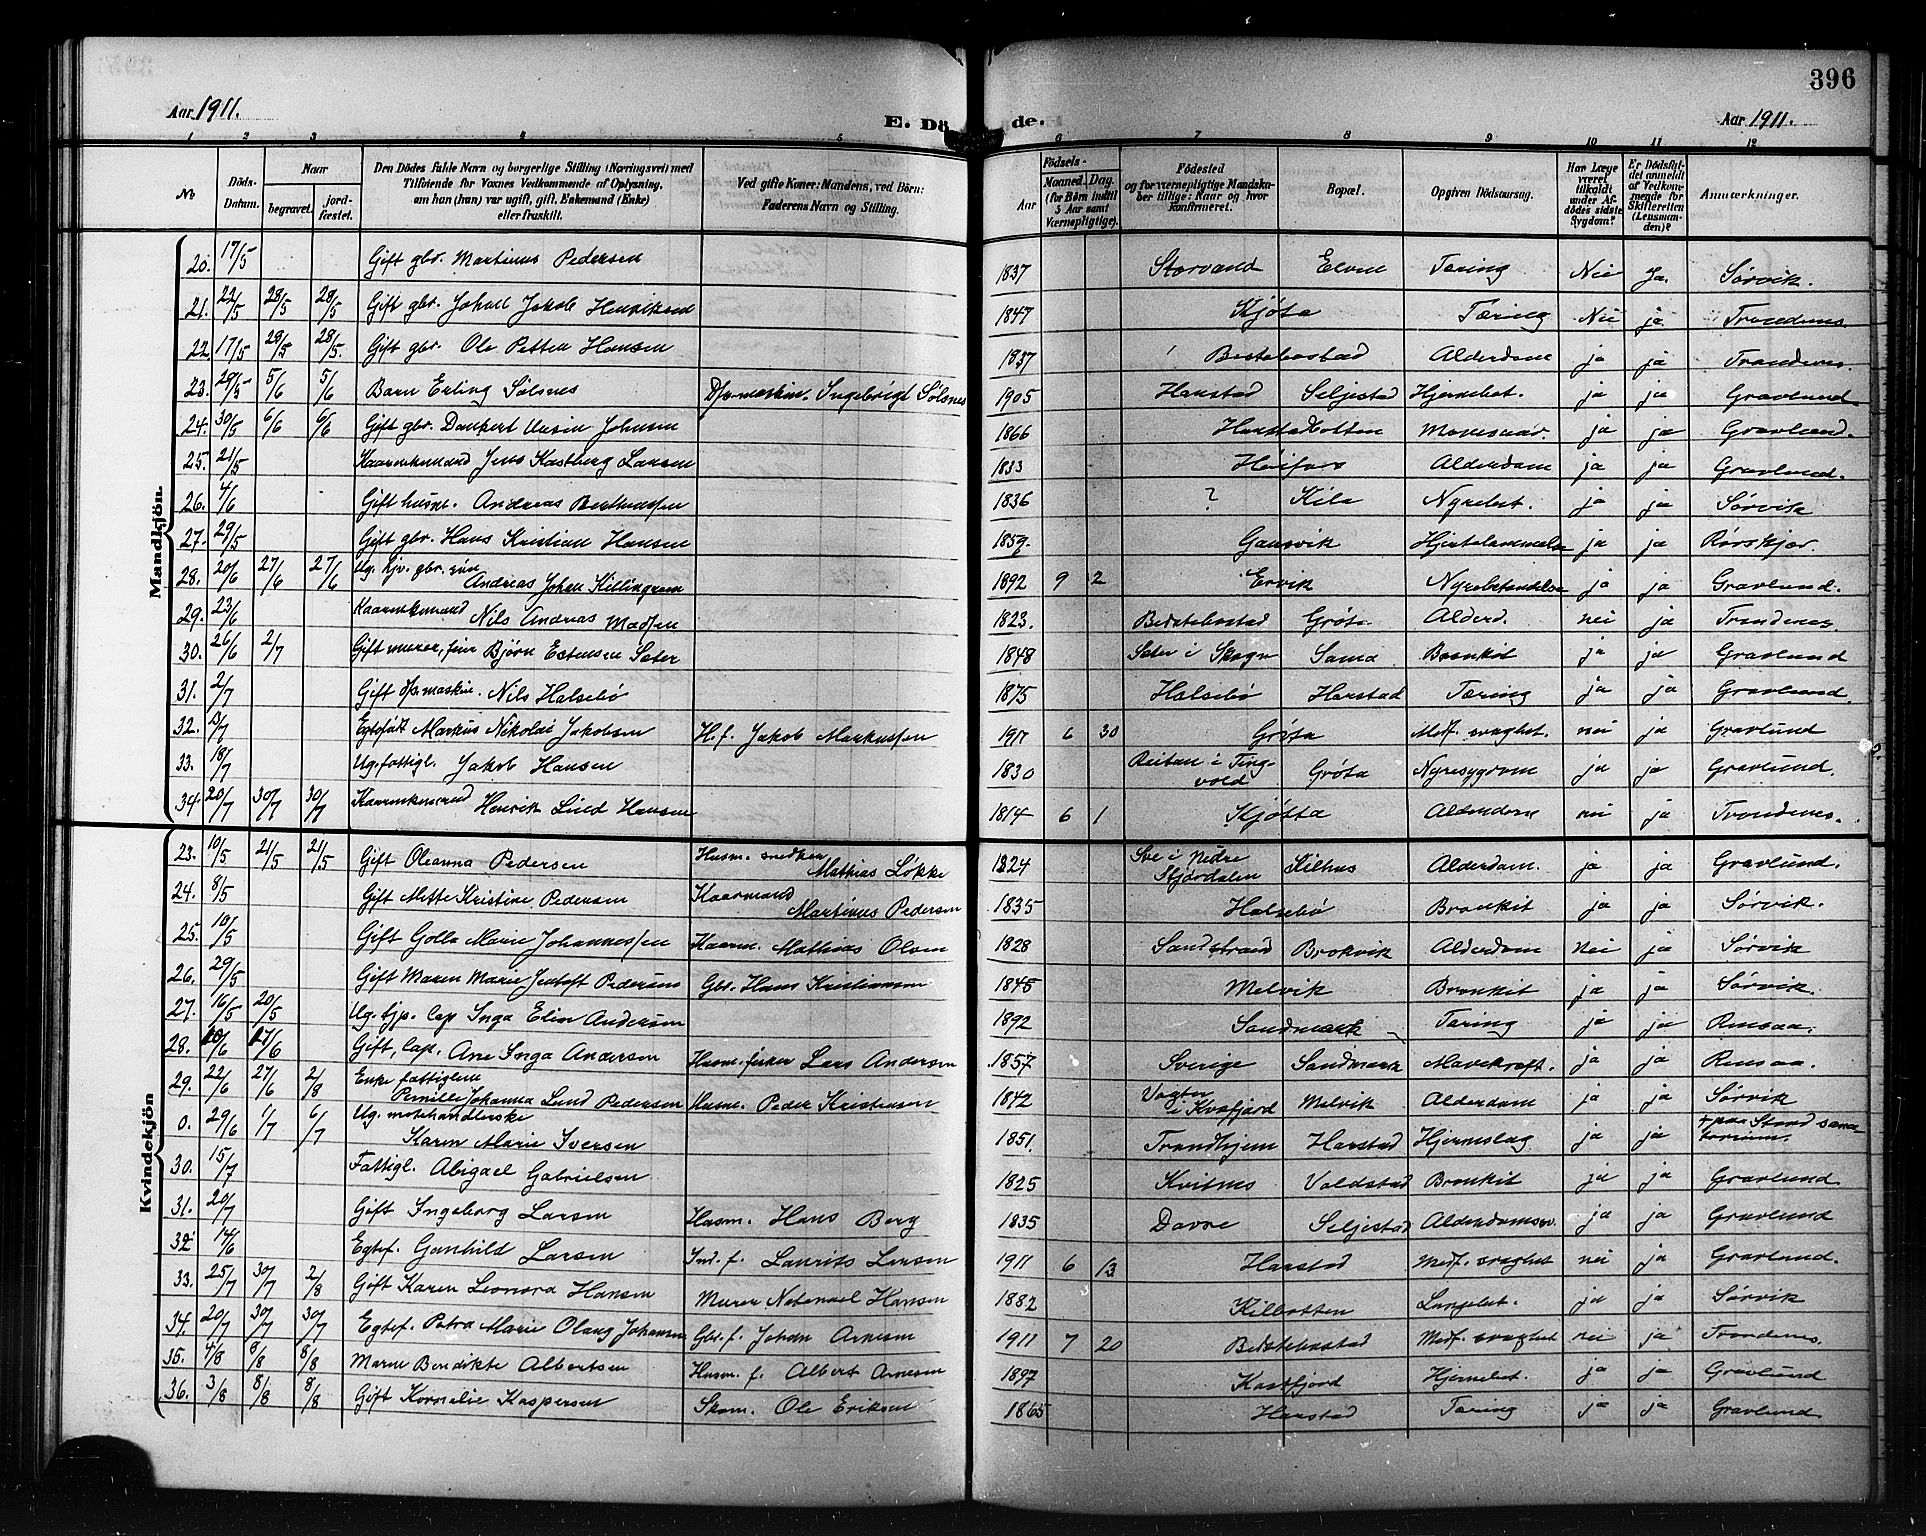 396
Aar 1911.
E. Döde.
Aar 1911.
1 2 3 4 5 6 7 8 9 10 11 12
No.
Döds-Datum.
Naar
begravet.
jordfæstet.
Den Dödes fulde Navn og borgerlige Stilling (Næringsvei) med
Tilföiende for Voxnes Vedkommende af Oplysning,
om han (hun) var ugift, gift, Enkemand (Enke)
eller fraskilt.
Ved gifte Koner: Mandens, ved Börn:
Faderens Navn og Stilling.
Födsels-
Aar
Maaned. Dag.
(for Börn indtil
3 Aar samt
Værnepligtige).
Födested
og for værnepligtige Mandska-
ber tillige: Naar og hvor
konfirmeret.
Bopæl.
Opgiven Dödsaarsag.
Har Læge
været
tilkaldt
under Af-
dödes sidste
Sygdom?
Er Dödsfal-
det anmeldt
af Vedkom-
mende for
Skifteretten
(Lensman-
den)?
Anmærkninger.
Mandkjön.
20. 17/5 Gift gbr. Martinus Pedersen 1837 Storvand Elvem Tæring Nei Ja. Sørvik.
21. 22/5 28/5 28/5 Gift gbr. Johan Jakob Henriksen 1847 Kjøta Tæring Nei ja Trondenes
22. 17/5 28/5 28/5. Gift gbr. Ole Petter Hansen 1837 Bestebostad Alderdom ja ja Trondenes.
23. 29/5 5/6 5/6 Barn Erling Sølsnes Dpr. maskin. Ingebrigt Sølsnes 1905 Harstad Seljestad Hjernebet. ja ja Gravlund.
24. 30/5 6/6 6/6 Gift gbr. Dankert Johnsen 1866 Harstadbotten Mavesaar. ja ja Gravlund.
25. 21/5 Kaarenkemand Jens Kastberg Larsen 1833 Høifors Alderdom ja ja Gravlund.
26. 4/6 Gift husm. Andreas Berthensen 1836 ? Kila Nyrebet. ja ja Sørvik
27. 29/5 Gift gbr. Hans Kristian Hansen 1859. Gausvik Hjertelammelse ja ja Rørskjær.
28. 20/6 27/6 27/6 Ug. hjv. gbr. søn
Andreas Johan Killingrem 1892 9 2 Ervik Nyrebetændelse ja ja Gravlund.
29. 23/6 Kaarenkemand
Nils Andreas Madsen 1823. Bedstebostad Grøta Alderd. nei ja Trondenes.
30. 26/6 2/7 Gift murer, Bjørn Estensen Seter 1848 Seter i Skogn Sama Bronkit ja ja Gravlund
31. 2/7 Gift dpr. maskin. Nils Halsebø 1875 Halsebø Harstad Tæring ja ja Gravlund.
32. /7 Egtefødt Markus Nikolai Jakobsen H. f. Jakob Markussen 1911 6 30 Grøta Medf. svaghet. nei ja Gravlund
33. 18/7 Ug. fattigl. Jakob Hansen 1830 Reitan i Ting-
vold Grøta Nyresygdom ja ja Gravlund.
34. 20/7 30/7 30/7 Kaarenkemand Henrik Lind Hansen 1814 6 1 Kjøtta Alderdom nei ja Trondenes.
Kvindekjön
23. 10/5 21/5 21/5 Gift Oleanna Pedersen Husm. snedker
Mathias Løkke 1824 i Nedre
Stjørdalen Kilhus Alderdom. ja ja Gravlund.
24. 8/5 Gift Mette Kristine Pedersen Kaarmand
Martinus Pedersen 1835 Halsebø Bronkit ja ja Sørvik.
25. 10/5 Gift Golla Marie Johannessen Kaarm. Mathias Olsen 1828 Sandstrand Brokvik Alderdom Nei ja Sørvik
26. 29/5 Gift Maren Marie Jentoft Pedersen Gbr. Hans Kristiansen 1845 Melvik Bronkit ja ja Sørvik.
27. 16/5 20/5 Ug. tjp. lap Inga Elen Andersen 1892 Sandmark Tæring ja ja Rensaa.
28. 20/6 27/6 Gift, lap. Ane Inga Andersen Husm. fisker Lars Andersen 1857 Sverige Sandmark Mavekræft. ja ja Rensaa.
29. 22/6 27/6 2/8 Enke fattiglem
Pernille Johanna Lund Pedersen Husm. Peder Kristensen 1842 Vogter
i Kvæfjord Melvik Alderdom ja ja Sørvik
0. 29/6 1/7 6/7 Ug. motehandlerske
Karen Marie Iversen 1851. Trondhjem Harstad Hjerneslag ja ja + paa Strand sana-
torium.
30. 15/7 Fattigl. Abigael Gabrielsen 1825 Kvitnes Voldstad Bronkit ja ja Gravlund
31. 20/7 Gift Ingeborg Larsen Husm. Hans Berg 1835 Davre Seljestad Alderdomssv. ja ja Gravlund
32. 14/6 Egtef. Gunhild Larsen Ind. f. Laurits Larsen 1911 6 13 Harstad Medf. svaghet nei ja Gravlund.
33. 25/7 30/7 2/8 Gift Karen Leonora Hansen Murer Natanael Hansen 1882 Kilbotten Lungebet. ja ja Sørvik
34. 20/7 30/7 30/7 Egtef. Petra Marie Olaug Johansen Gbr. f. Johan Arnesen 1911 7 20 Bedstebostad Medf. svaghet nei ja Trondenes.
35. 4/8 8/8 8/8 Maren Bendikte Albertsen Husm. f. Albert Arnesen 1897 Kasfjord Hjernebet. ja ja Gravlund
36. 3/8 8/8 8/8 Gift Kornelie Kaspersen Skom. Ole Eriksen 1865 Harstad Tæring ja ja Gravlund.